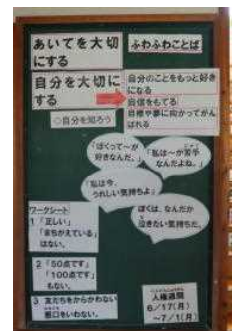 あいてを大切
にする
ふわふわことば
自分を大切に
する
自分のことをもっと好き
になる
自信をもてる
目標や夢に向かってがん
ばれる
◇自分を知ろう
「ぼくって〜が
好きなんだ。」
「私は〜が苦手
なんだよね。」
「私は今、
うれしい気持ちよ」
ぼくは、なんだか
泣きたい気持ちだ。
ワークシート
1 「正しい」
「まちがえている」
はない。
2 「50点です」
「100点です」
もない。
3 友だちをからかわない
悪口をいわない。
人権週間
6/17(月)
~7/1(月)